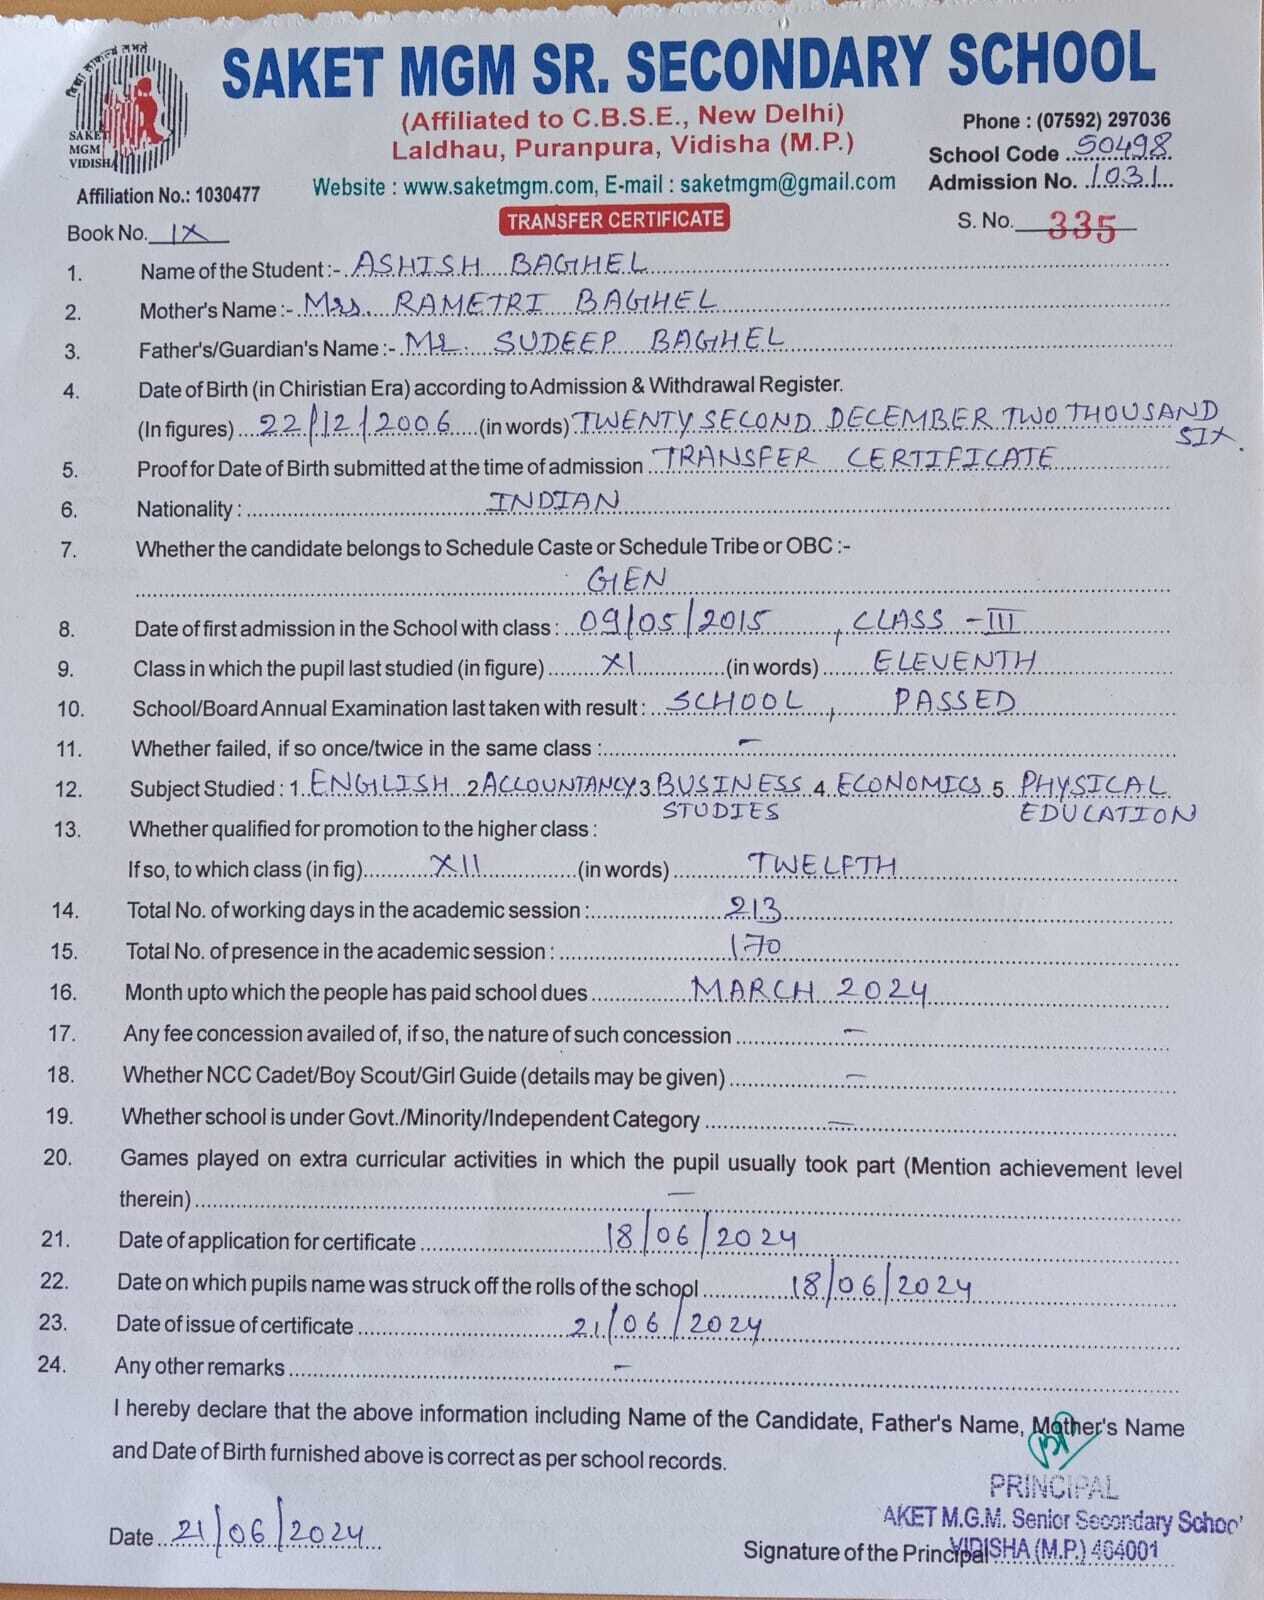 SAKET MGM SR. SECONDARY SCHOOL
(Affiliated to C.B.S.E., New Delhi)
Laldhau, Puranpura, Vidisha (M.P.)
Phone : (07592) 297036
School Code 50498
Admission No. 1031
SAKET
MGM
VIDISHA
Affiliation No.: 1030477
Website : www.saketmgm.com, E-mail : saketmgm@gmail.com
Book No. IX
TRANSFER CERTIFICATE
S. No. 335
1. Name of the Student :- ASHISH BAGHEL
2. Mother's Name :- Mrs. RAMETRI BAGHEL
3. Father's/Guardian's Name :- Mr. SUDEEP BAGHEL
4. Date of Birth (in Chiristian Era) according to Admission & Withdrawal Register.
(In figures) 22/12/2006 (in words) TWENTY SECOND DECEMBER TWO THOUSAND
SIX.
5. Proof for Date of Birth submitted at the time of admission TRANSFER CERTIFICATE
6. Nationality : INDIAN
7. Whether the candidate belongs to Schedule Caste or Schedule Tribe or OBC :-
GEN
8. Date of first admission in the School with class : 09/05/2015, CLASS - III
9. Class in which the pupil last studied (in figure) XI (in words) ELEVENTH
10. School/Board Annual Examination last taken with result : SCHOOL, PASSED
11. Whether failed, if so once/twice in the same class : -
12. Subject Studied : 1. ENGLISH 2 ACCOUNTANCY 3 BUSINESS 4 ECONOMICS 5 PHYSICAL
STUDIES EDUCATION
13. Whether qualified for promotion to the higher class :
If so, to which class (in fig) XII (in words) TWELFTH
14. Total No. of working days in the academic session : 213
15. Total No. of presence in the academic session : 170
16. Month upto which the people has paid school dues MARCH 2024
17. Any fee concession availed of, if so, the nature of such concession -
18. Whether NCC Cadet/Boy Scout/Girl Guide (details may be given) -
19. Whether school is under Govt./Minority/Independent Category -
20. Games played on extra curricular activities in which the pupil usually took part (Mention achievement level
therein) -
21. Date of application for certificate 18/06/2024
22. Date on which pupils name was struck off the rolls of the school 18/06/2024
23. Date of issue of certificate 21/06/2024
24. Any other remarks -
I hereby declare that the above information including Name of the Candidate, Father's Name, Mother's Name
and Date of Birth furnished above is correct as per school records.
PRINCIPAL
AKET M.G.M. Senior Secondary Schoo
VIDISHA (M.P.) 464001
Date 21/06/2024
Signature of the Principal